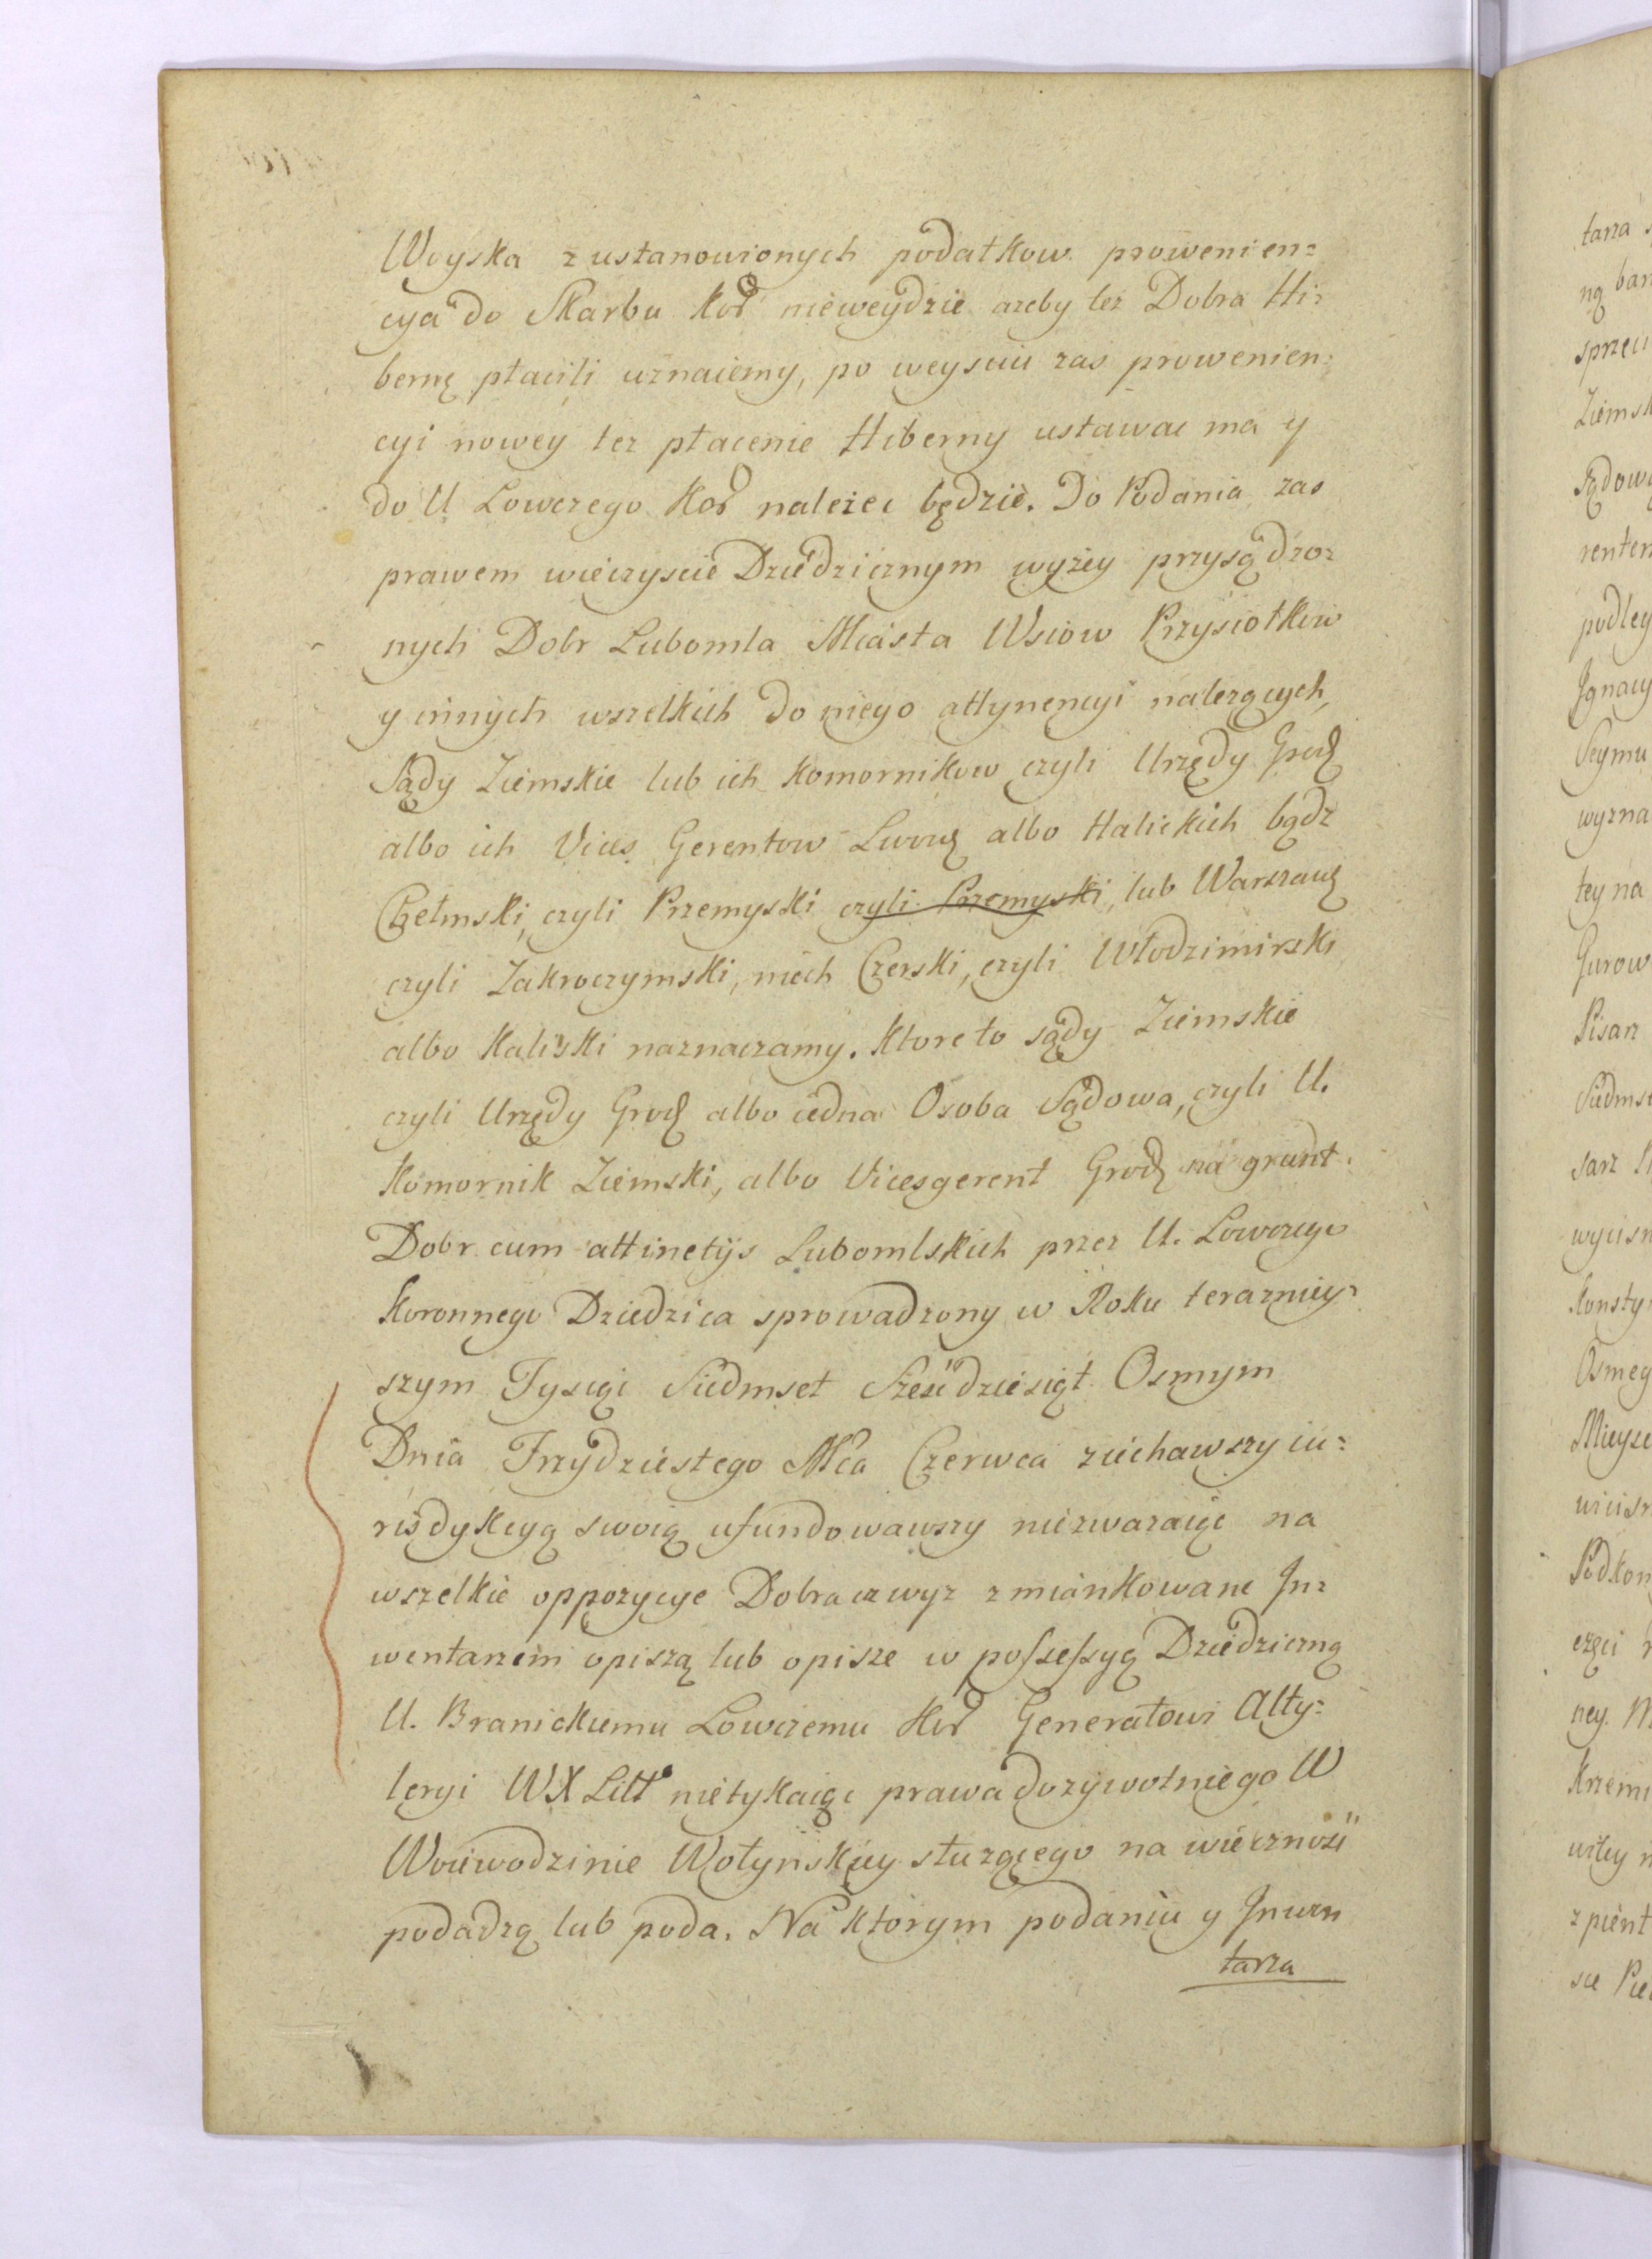 Woyska z ustanowionych podatkow prowenien=
cya do Skarbu Kor nieweydzie azeby tez Dobra Hi=
bernę płacili uznaiemy, po weysciu zas prowenien=
cyi nowey tez płacenie Hiberny ustawac ma y
do U Lowczego Kor nalezec będzie. Do Podania zas
prawem wieczyscie Dziedzicznym wyżey przysądzo=
nych Dobr Lubomla Miasta Wsiow Przysiołkow
y innych wszelkich do niego attynencyi nalezących,
Sądy Ziemskie lub ich Komornikow czyli Urzędy Grod
albo ich Vices Gerentow Lwow albo Halickich bądz
Chełmski, czyli Przemyski czyli Przemyski, lub Warszaw
czyli Zakroczymski, niech Czerski, czyli Włodzimirski
albo Kaliski naznaczamy. Ktore to sądy Ziemskie
czyli Urzędy Grod albo iedna Osoba Sądowa, czyli U.
Komornik Ziemski, albo Vicesgerent Grod na grunt
Dobr cum attinetijs Lubomlskich przez U. Lowczego
Koronnego Dziedzica sprowadzony w Roku terazniey=
szym Tysiąc Siedmset Sześćdziesiąt Osmym
Dnia Trzydziestego Mca Czerwca ziechawszy iu=
risdykcyą swoią ufundowawszy niezwazaiąc na
wszelkie oppozycye Dobra wyz zmiankowane In=
wentarzem opiszą lub opisze w possessyą Dziedziczną
U. Branickiemu Lowczemu Kor Generałowi Atty=
leryi WX Litt nietykaiąc prawa dozywotniego W
Woiewodzinie Wołyńskiey słuzącego na wieczność
podadzą lub poda. Na ktorym podaniu y Inwen
tarza